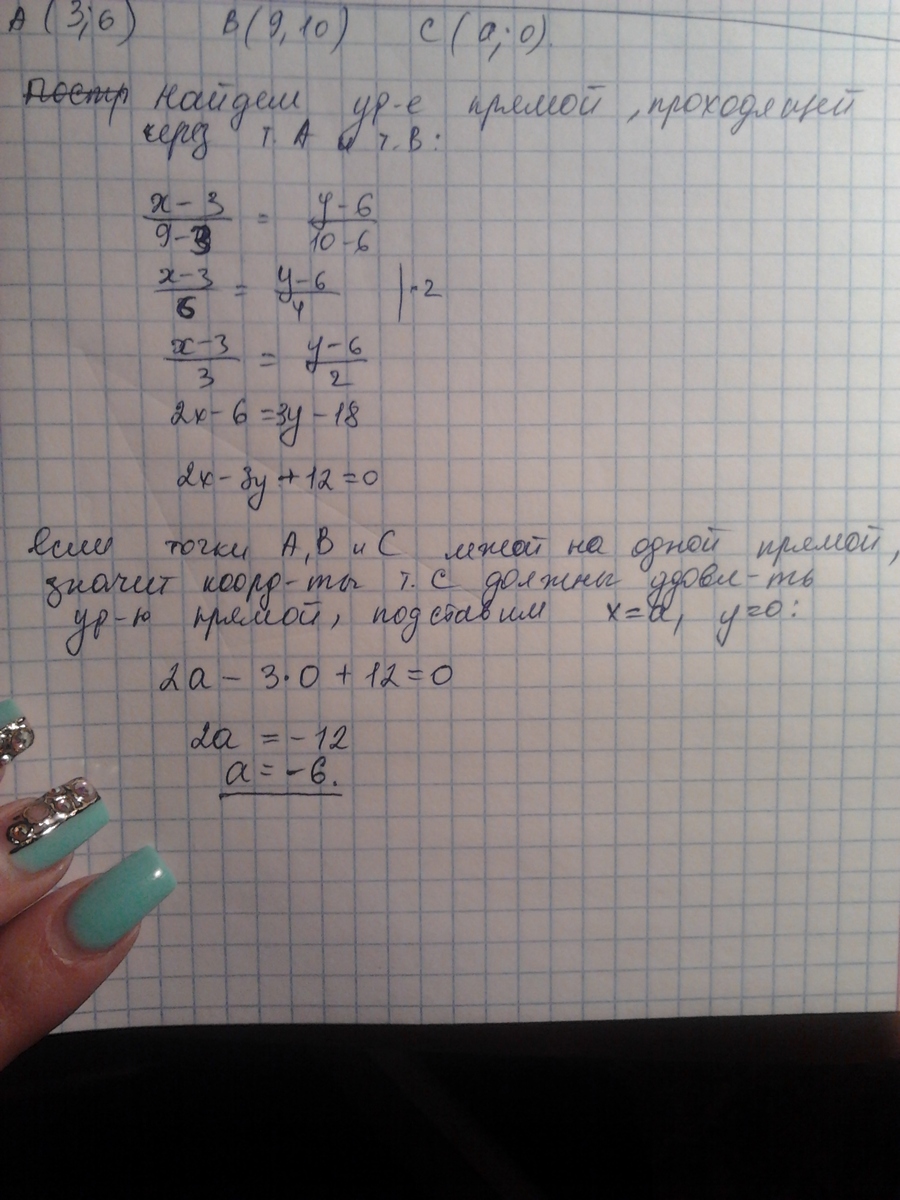 А (3;6) В(9,10) С (а;0).
Постр Найдем ур-е прямой, проходящей
через т. А и т. В:
x-3/9-3 = y-6/10-6
x-3/6 = y-6/4 |·2
x-3/3 = y-6/2
2x-6=3y-18
2x-3y+12=0
если точки А, В и С лежат на одной прямой,
значит коорд-ты т. С должны удовл-ть
ур-ю прямой, подставим x=a, y=0:
2a-3·0+12=0
2a=-12
a=-6.